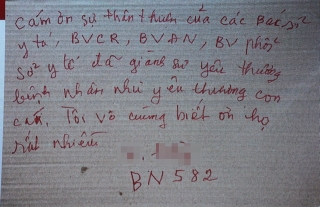 Cảm ơn sự thân thiện của các Bác sỹ
y tá, BVCR, BVAN, BV phổi
sở y tế đã giành sự yêu thương
bệnh nhân như yêu thương con
cái. Tôi vô cùng biết ơn họ
rất nhiều
BN 582